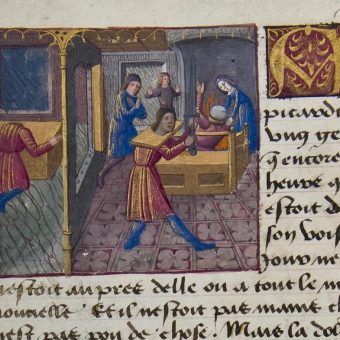 picardi
vng ge
q encores
heure q
estoit d
son vois
Jour ne
nestoit au pres delle on a tout le m
nouvelle Et il nestoit pas mame c
nest pas peu de chose. Mais la dol